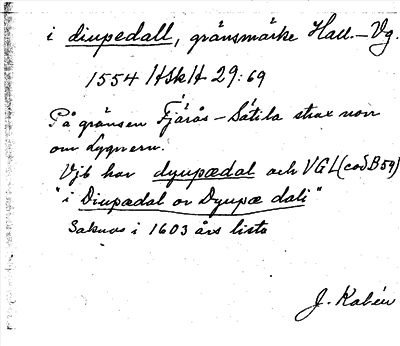 i diupedall, gränsmärke Hall.–Vg.
1554 HSkH 29:69
På gränsen Fjärås–Sätila strax norr
om Lygnern.
Vjb har dyupædal och VGL (cod B59)
"i Diupædal or Dyupæ dali"
Saknas i 1603 års lista
J. Kalén